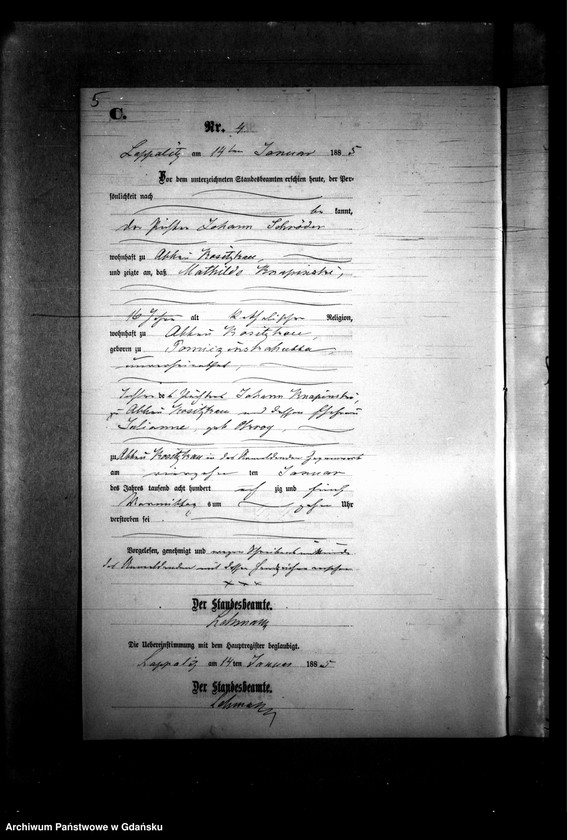 5
C.
Nr. 4
Lappalitz am 14ten Januar 1885
Vor dem unterzeichneten Standesbeamten erschien heute, der Per-
sönlichkeit nach
be kannt,
der Johann Schröder
wohnhaft zu Abbau Kositzkau,
und zeigte an, daß Mathilde Knapinski,
16 Jahre alt katholischer Religion,
wohnhaft zu Abbau Kositzkau,
geboren zu
unverheirathet,
Tochter des Johann Knapinski,
zu Abbau Kositzkau und dessen Ehefrau
Julianne, geb.
zu Abbau Kositzkau in des Anmeldenden Gegenwart
am vierzehn ten Januar
des Jahres tausend acht hundert acht zig und fünf
Vormittag s um zehn Uhr
verstorben sei
Vorgelesen, genehmigt und wegen
des Anmeldenden mit dessen Handzeichen versehen
+ + +
Der Standesbeamte.
Lehmann
Die Uebereinstimmung mit dem Hauptregister beglaubigt.
Lappalitz am 14ten Januar 1885
Der Standesbeamte.
Lehmann
Archiwum Państwowe w Gdańsku